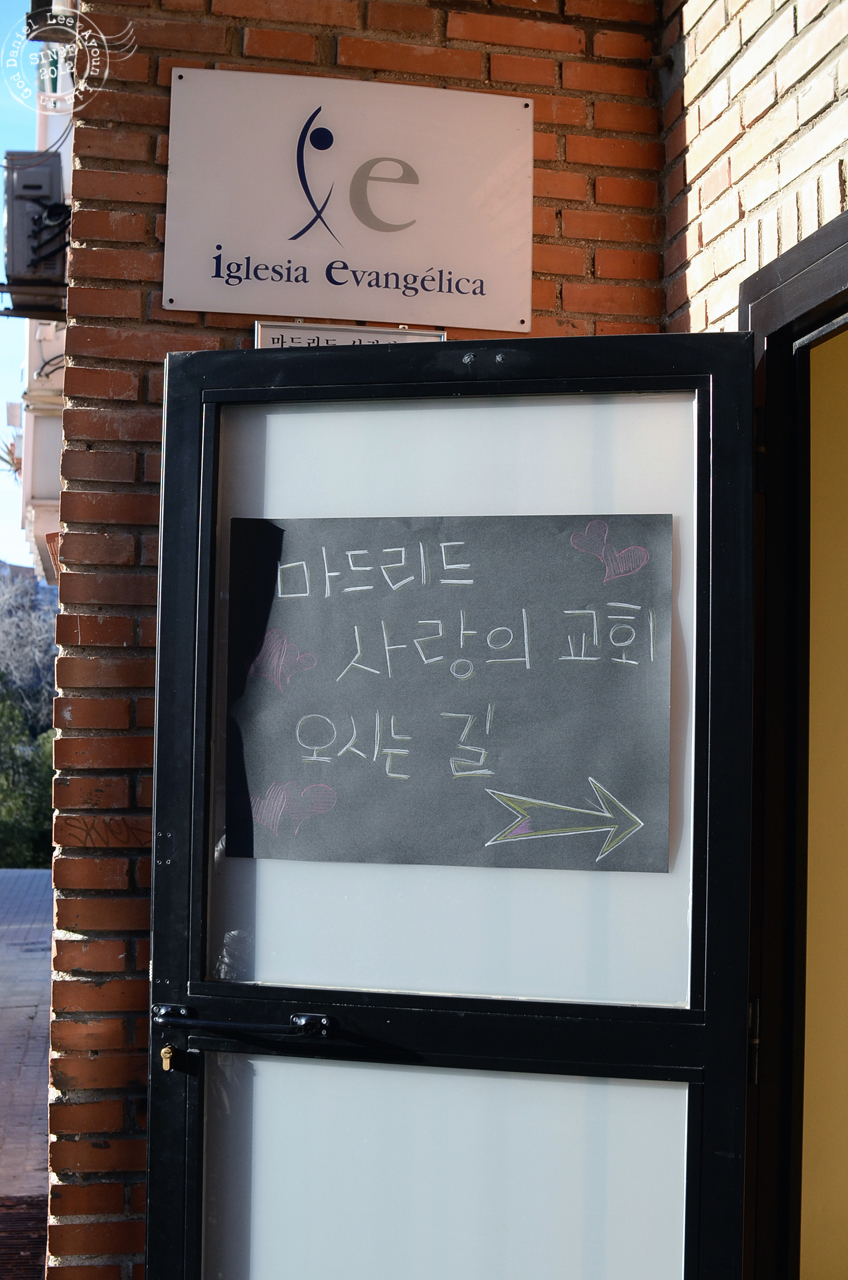 SINCE
2012
ie
iglesia evangélica
마드리드
마드리드
사랑의 교회
오시는 길